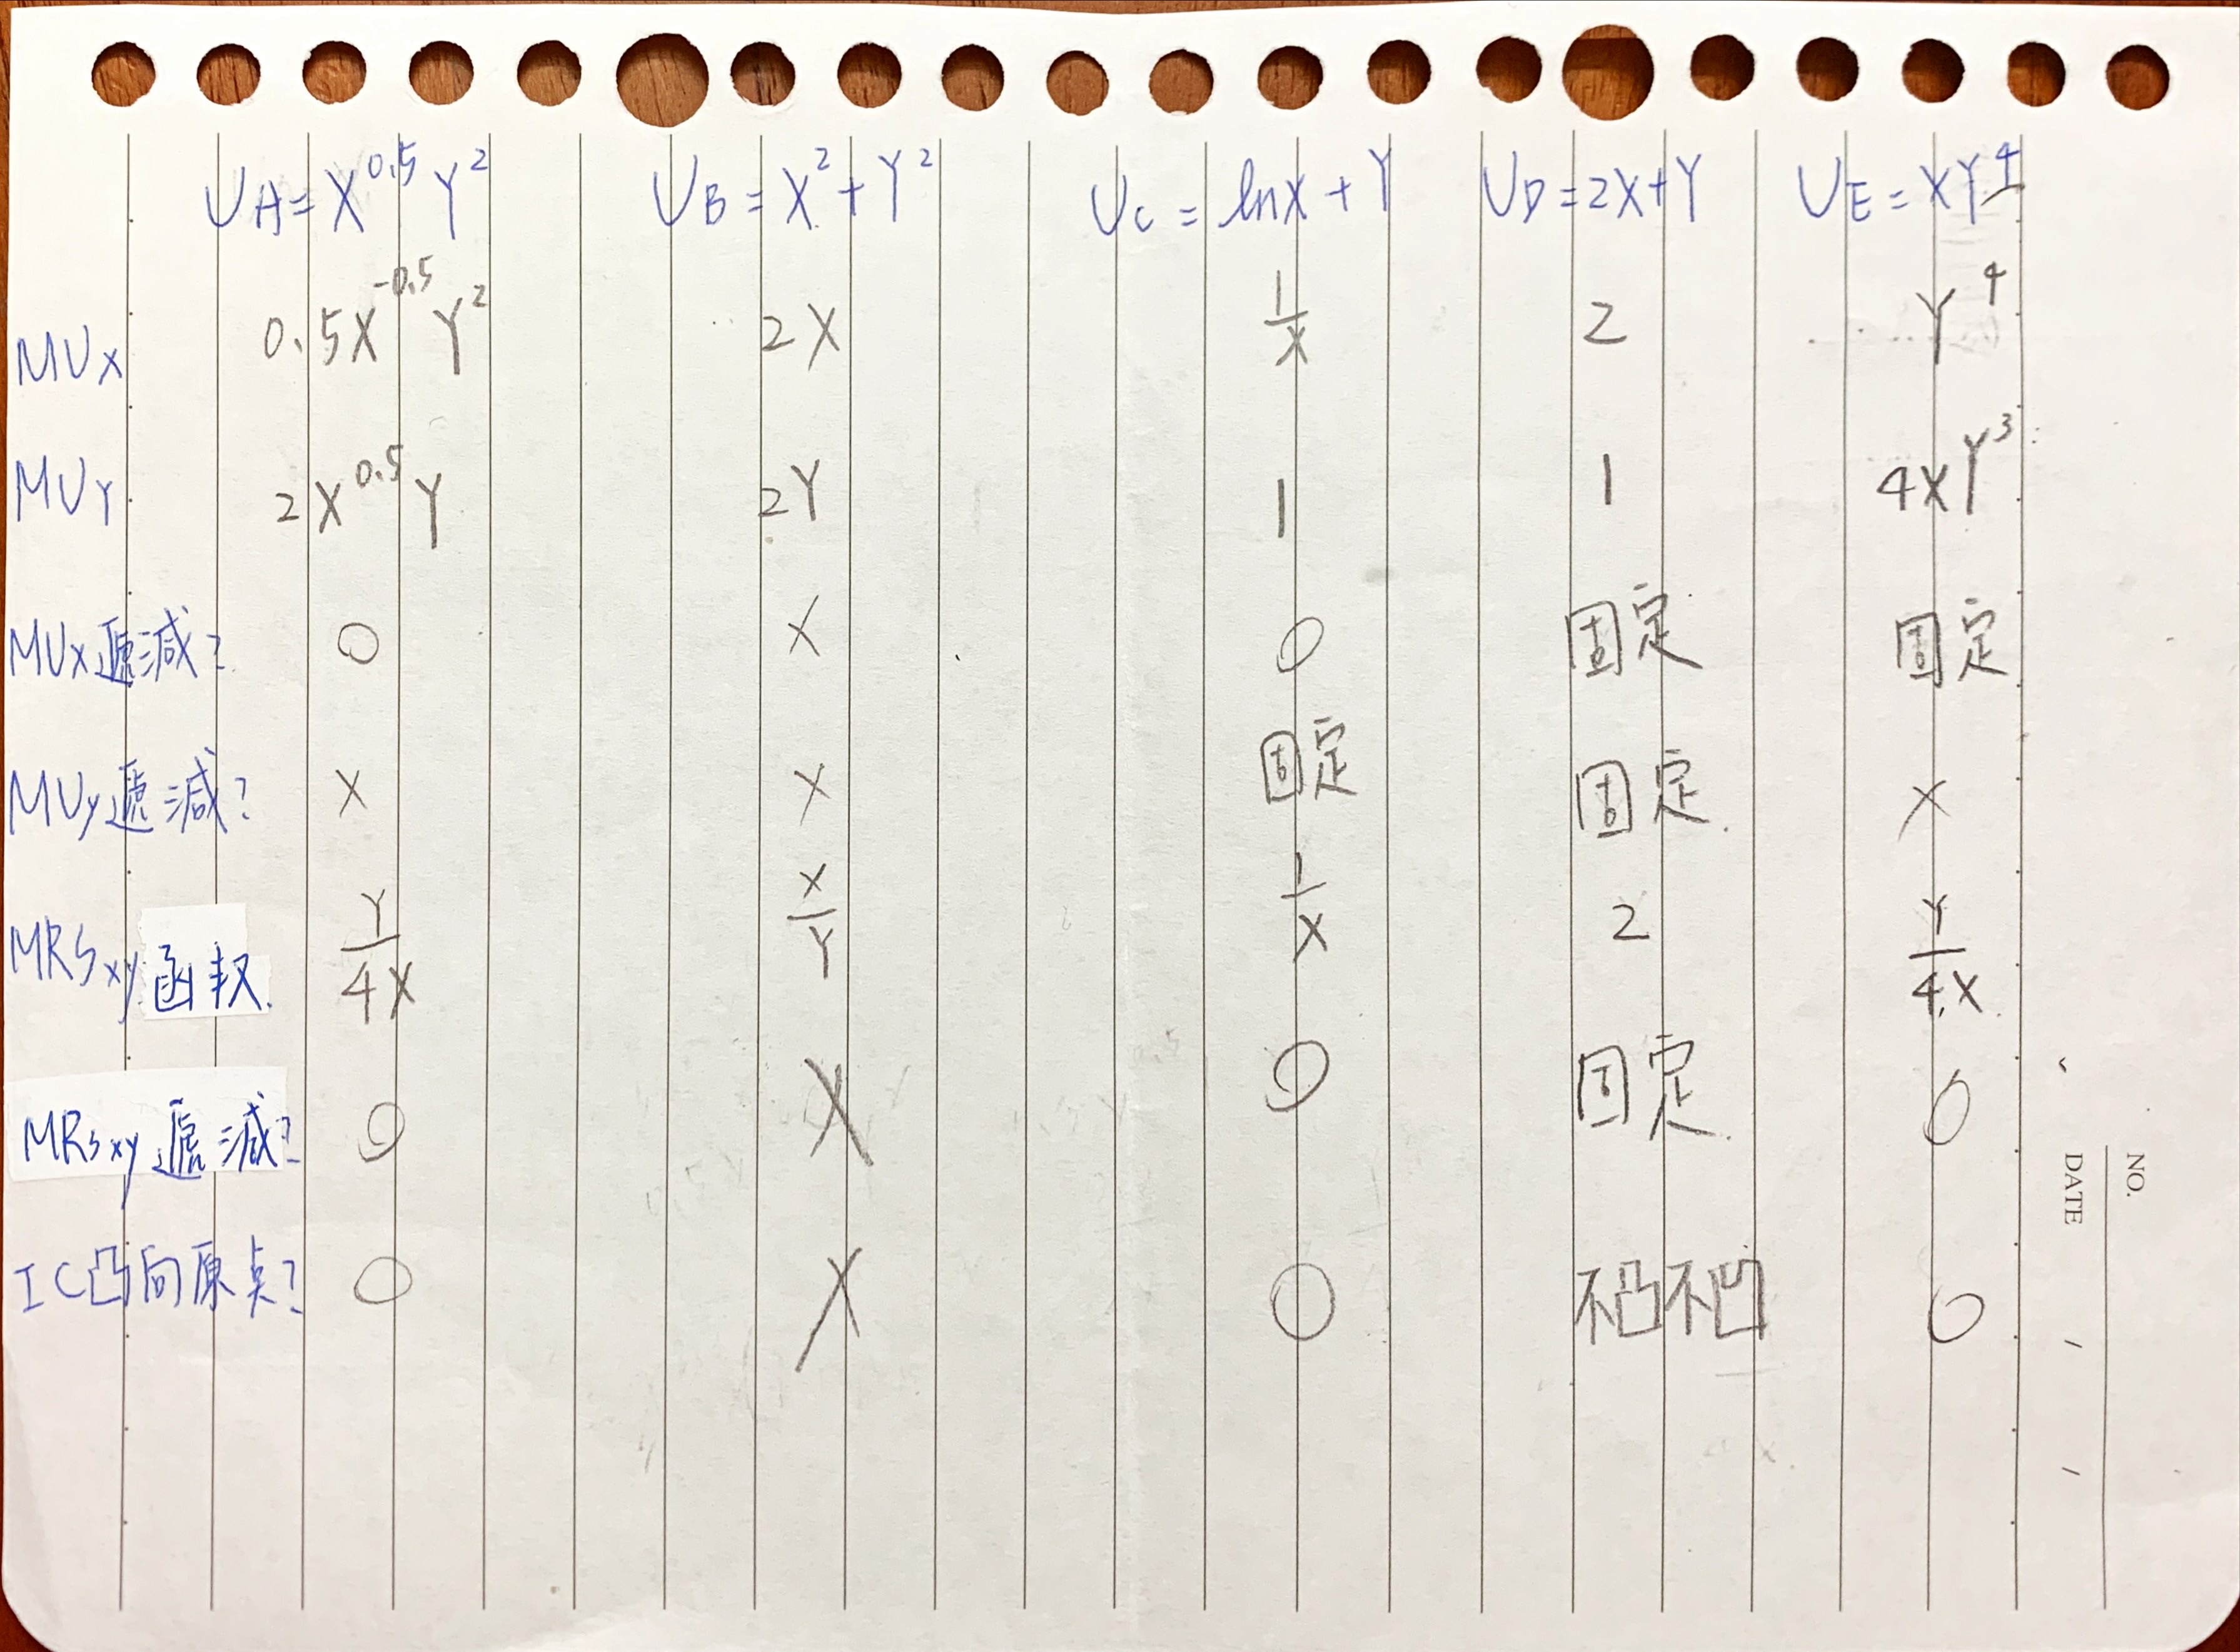 U_A = X^0.5 Y^2 U_B = X^2 + Y^2 U_C = lnX + Y U_D = 2X+Y U_E = XY^4
MUx 0.5X^-0.5 Y^2 2X 1/X 2 Y^4
MUY 2X^0.5 Y 2Y 1 1 4XY^3
MUx遞減? O X O 固定 固定
MUy遞減? X X 固定 固定. X
MRSxy函数. Y/4X X/Y 1/X 2 Y/4X
MRSxy遞減? O X O 固定. O
IC凸向原点? O X O 不凸不凹 O
NO.
DATE / /